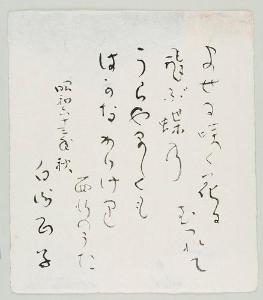 ませに咲く花に
むつれて
飛ぶ蝶の
うらやましくも
はかなかりけり
西行のうた
昭和六十三年秋
白洲正子